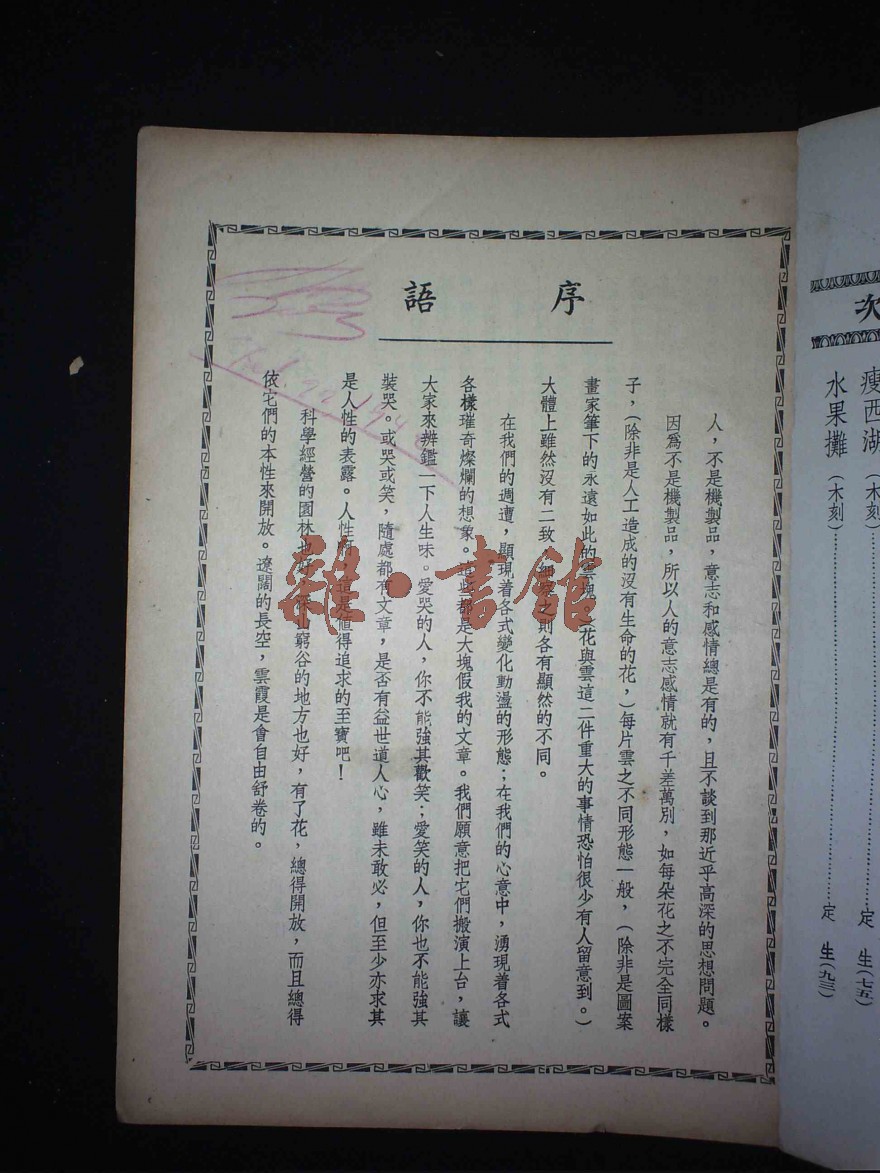 序語
人，不是機製品，意志和感情總是有的，且不談到那近乎高深的思想問題。
因爲不是機製品，所以人的意志感情就有千差萬別，如每朵花之不完全同樣
子，（除非是人工造成的沒有生命的花，）每片雲之不同形態一般，（除非是圖案
畫家筆下的永遠如此的雲塊。）花與雲這二件重大的事情恐怕很少有人留意到。）
大體上雖然沒有二致，細察之則各有顯然的不同。
在我們的週遭，顯現着各式變化動盪的形態；在我們的心意中，湧現着各式
各樣璀奇燦爛的想象。這些都是大塊假我的文章。我們願意把它們搬演上台，讓
大家來辨鑑一下人生味。愛哭的人，你不能強其歡笑；愛笑的人，你也不能強其
裝哭。或哭或笑，隨處都有文章，是否有益世道人心，雖未敢必，但至少亦求其
是人性的表露。人性啊，這是值得追求的至寶吧！
科學經營的園林也好，深山窮谷的地方也好，有了花，總得開放，而且總得
依它們的本性來開放。遼闊的長空，雲霞是會自由舒卷的。
雜·書館
次
瘦西湖（木刻）……定 生（七五）
水果攤（木刻）……定 生（九三）